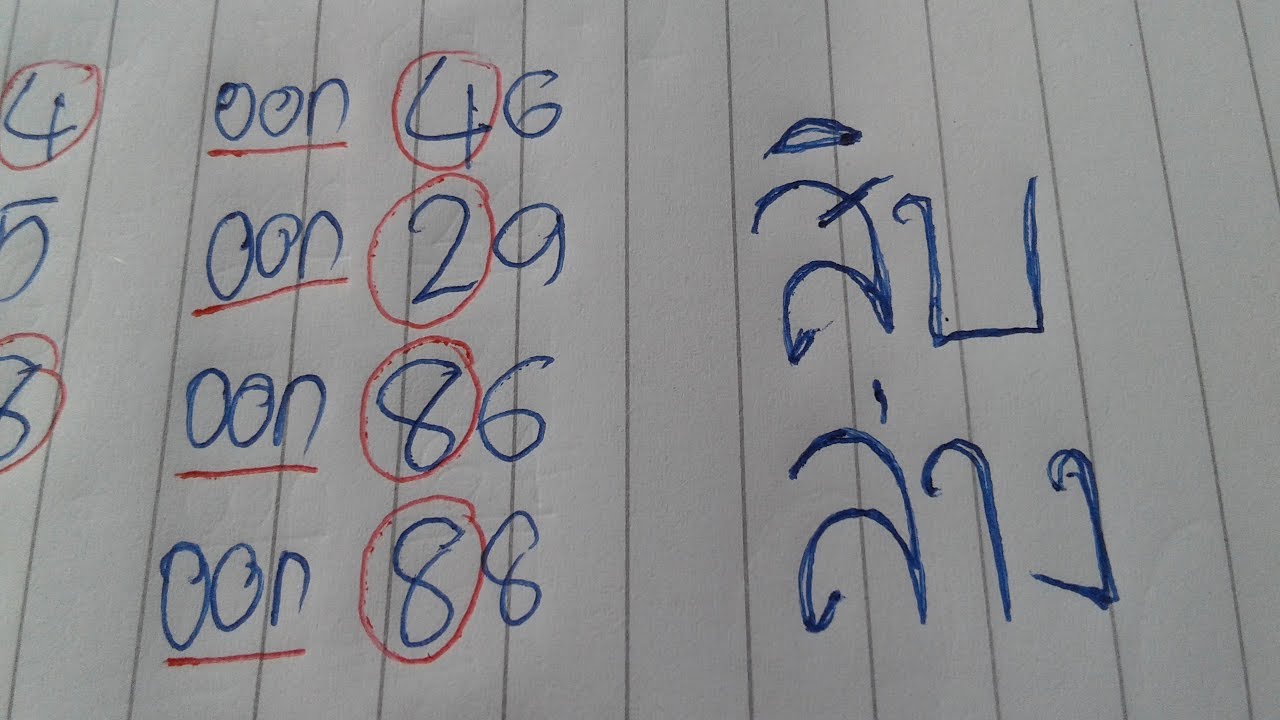 4 ออก 46
5 ออก 29
8 ออก 86
ออก 88
สิบ
ล่าง